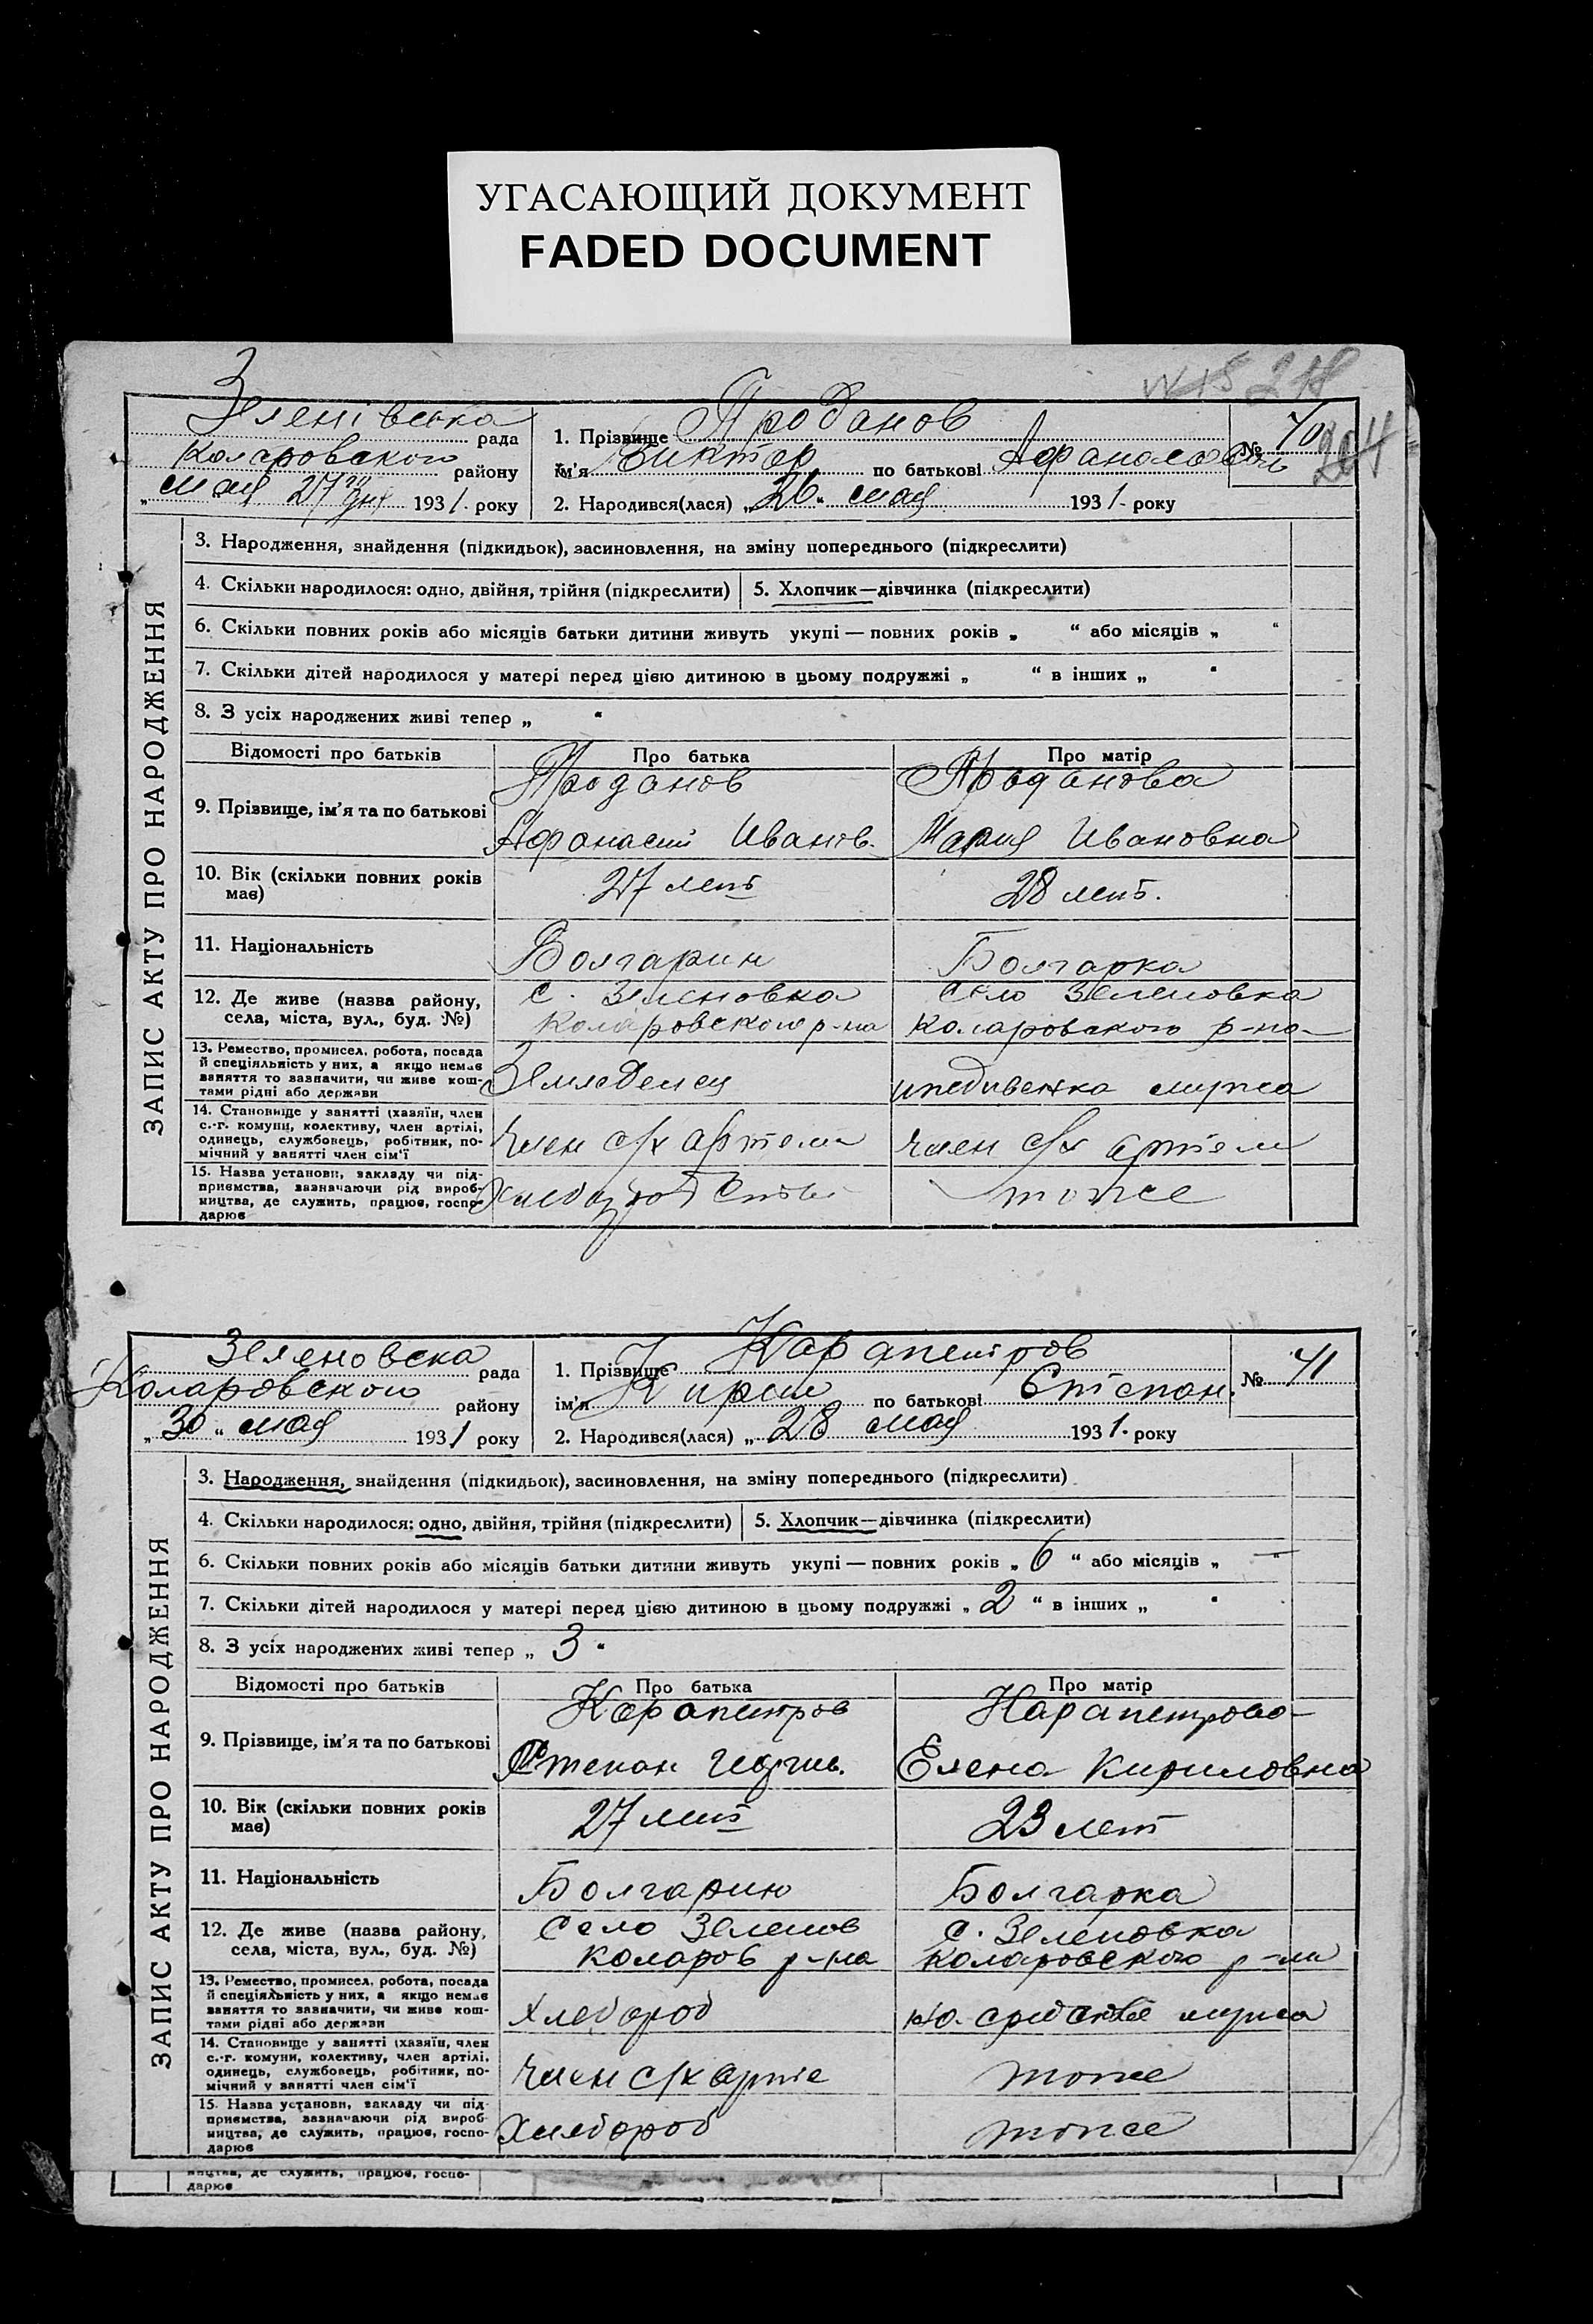 УГАСАЮЩИЙ ДОКУМЕНТ
FADED DOCUMENT
218
204
ЗАПИС АКТУ ПРО НАРОДЖЕННЯ
Зеленівська рада
Коларовского району
„ мая 27го дня 1931. року
1. Прізвище Проданов
ім'я Виктор по батькові
№ 40
2. Народився(лася) „26“ мая 1931. року
3. Народження, знайдення (підкидьок), засиновлення, на зміну попереднього (підкреслити)
4. Скільки народилося: одно, двійня, трійня (підкреслити) 5. Хлопчик—дівчинка (підкреслити)
6. Скільки повних років або місяців батьки дитини живуть укупі — повних років „ “ або місяців „ “
7. Скільки дітей народилося у матері перед цією дитиною в цьому подружжі „ “ в інших „ “
8. З усіх народжених живі тепер „ “
Відомості про батьків Про батька Про матір
9. Прізвище, ім'я та по батькові
Проданов
Афанасий Иванов.
Проданова
Мария Ивановна
10. Вік (скільки повних років має)
27 лет
28 лет.
11. Національність
Болгарин
Болгарка
12. Де живе (назва району,
села, міста, вул., буд. №)
с. Зеленовка
Коларовского р-на
Село Зеленовка
Коларовского р-на
13. Ремество, промисел, робота, посада
й спеціяльність у них, а якщо немає
заняття то зазначити, чи живе кош-
тами рідні або держави
Земледелец
иждивенка мужа
14. Становище у занятті (хазяїн, член
с.-г. комуни, колективу, член артілі,
одинець, службовець, робітник, по-
мічний у занятті член сім'ї
член с/х артели
член с/х артели
15. Назва установи, закладу чи під-
приємства, зазначаючи рід вироб-
ництва, де служить, працює, госпо-
дарює
тоже
ЗАПИС АКТУ ПРО НАРОДЖЕННЯ
Зеленовска рада
Коларовского району
„30“ мая 1931 року
1. Прізвище Карапетров
ім'я Кирил по батькові Степан.
№ 41
2. Народився(лася) „28 мая 1931. року
3. Народження, знайдення (підкидьок), засиновлення, на зміну попереднього (підкреслити)
4. Скільки народилося: одно, двійня, трійня (підкреслити) 5. Хлопчик—дівчинка (підкреслити)
6. Скільки повних років або місяців батьки дитини живуть укупі — повних років „6“ або місяців „—“
7. Скільки дітей народилося у матері перед цією дитиною в цьому подружжі „2“ в інших „ “
8. З усіх народжених живі тепер „3“
Відомості про батьків Про батька Про матір
9. Прізвище, ім'я та по батькові
Карапетров
Степан Георгиев.
Карапетрова
Елена Кириловна
10. Вік (скільки повних років має)
27 лет
23 лет
11. Національність
Болгарин
Болгарка
12. Де живе (назва району,
села, міста, вул., буд. №)
Село Зеленов
Коларов р-на
с. Зеленовка
Коларовского р-на
13. Ремество, промисел, робота, посада
й спеціяльність у них, а якщо немає
заняття то зазначити, чи живе кош-
тами рідні або держави
Хлебороб
на средства мужа
14. Становище у занятті (хазяїн, член
с.-г. комуни, колективу, член артілі,
одинець, службовець, робітник, по-
мічний у занятті член сім'ї
член с/х арте
тоже
15. Назва установи, закладу чи під-
приємства, зазначаючи рід вироб-
ництва, де служить, працює, госпо-
дарює
Хлебороб
тоже
ництва, де служить, працює, госпо-
дарює